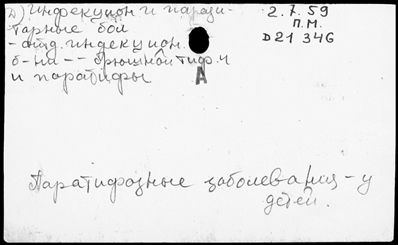 2) Инфекцион и парази-
тарные бол
- отд. индекцион.
б-на -- Брюшной тиф. и
и паратифы
2.7.59
П.М.
D21 346
А
Паратифозные заболевания - у
детей.